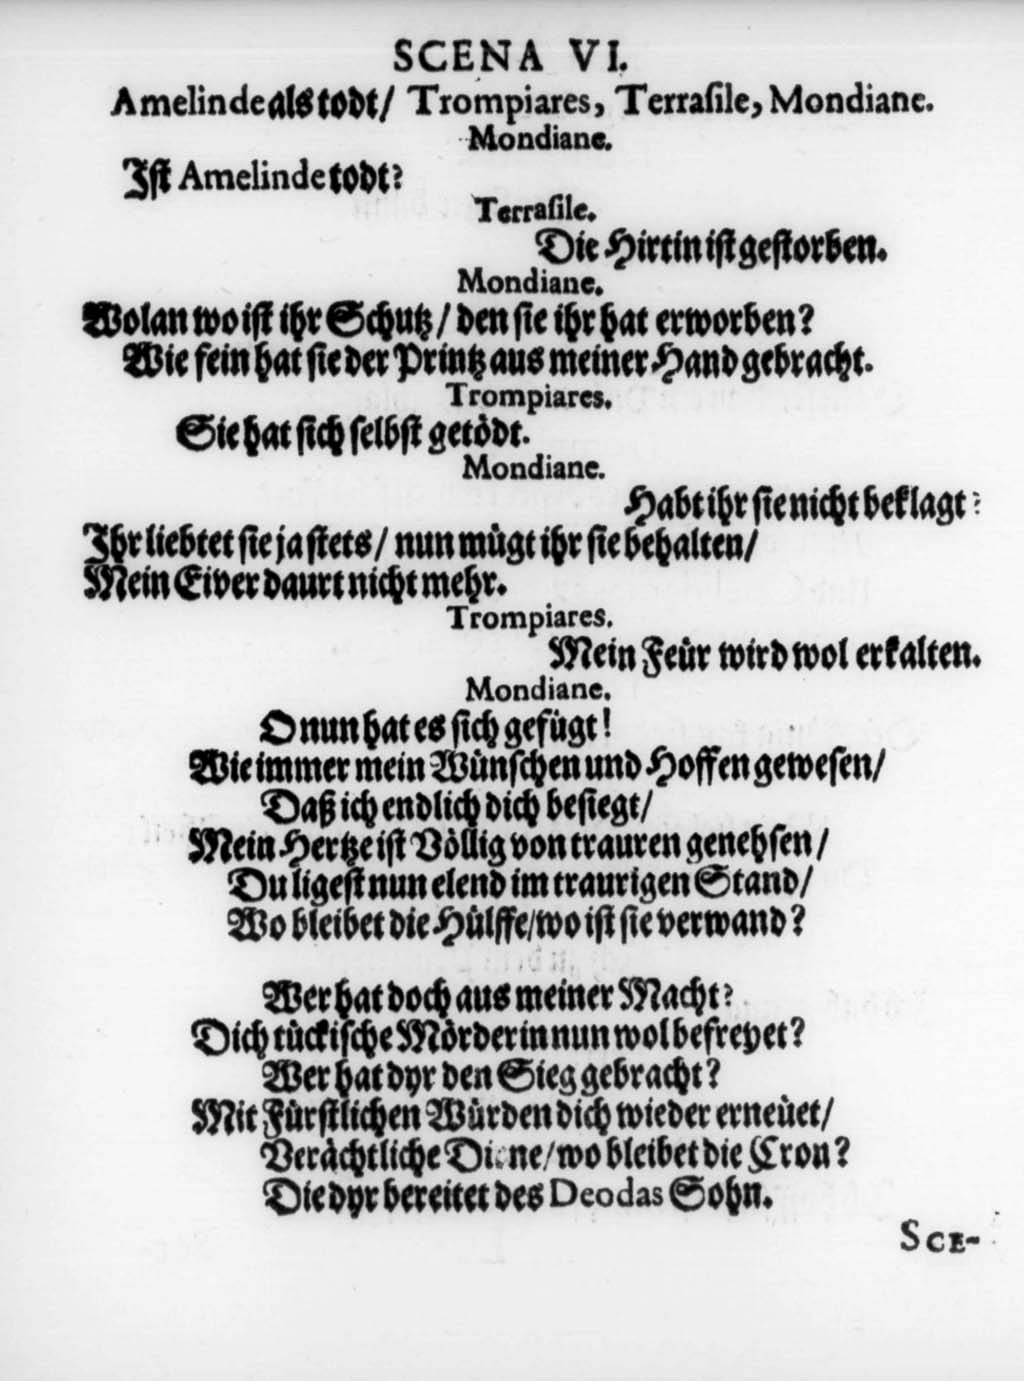 SCENA VI.
Amelinde als todt/ Trompiares, Terraſile, Mondiane.
Mondiane.
Iſt Amelinde todt?
Terraſile.
Die Hirtin iſt geſtorben.
Mondiane.
Wolan wo iſt ihr Schutz/ den ſie ihr hat erworben?
Wie fein hat ſie der Printz aus meiner Hand gebracht.
Trompiares.
Sie hat ſich ſelbſt getödt.
Mondiane.
Habt ihr ſie nicht beklagt?
Ihr liebtet ſie ja ſtets/ nun mügt ihr ſie behalten/
Mein Eiver daurt nicht mehr.
Trompiares.
Mein Feür wird wol erkalten.
Mondiane.
O nun hat es ſich gefügt!
Wie immer mein Wünſchen und Hoffen geweſen/
Daß ich endlich dich beſiegt/
Mein Hertze iſt Völlig von trauren genehſen/
Du ligeſt nun elend im traurigen Stand/
Wo bleibet die Hülffe/wo iſt ſie verwand?
Wer hat doch aus meiner Macht?
Dich tückiſche Mörderin nun wol befreyet?
Wer hat dyr den Sieg gebracht?
Mit Fürſtlichen Würden dich wieder erneüet/
Verächtliche /wo bleibet die Cron?
Die dyr bereitet des Deodas Sohn.
SCE-